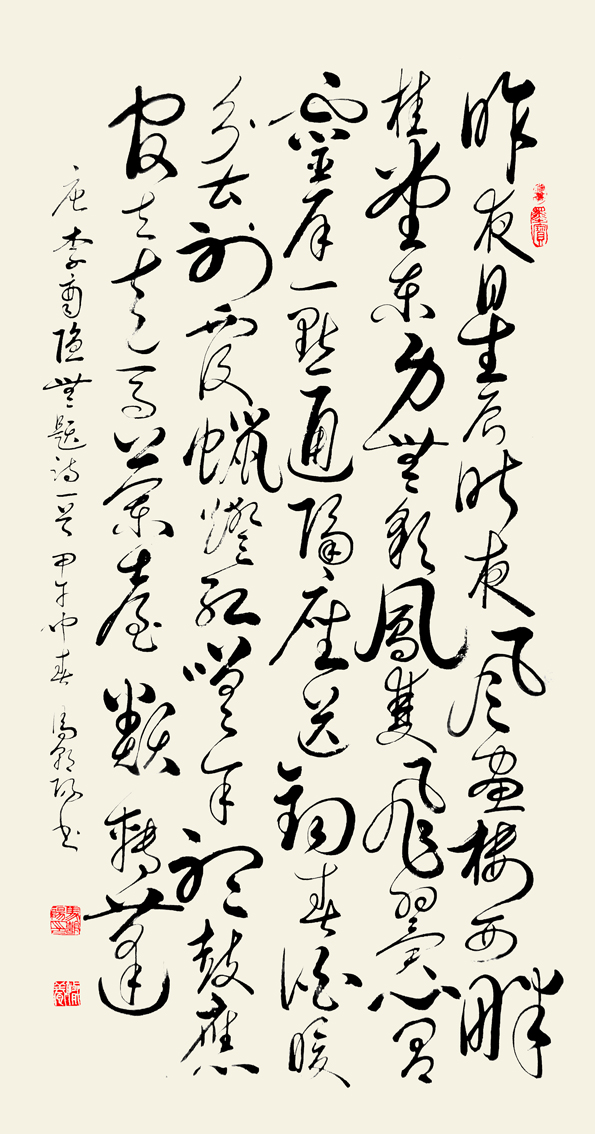 昨夜星辰昨夜風畫樓西畔
桂堂東身無彩鳳雙飛翼心有
靈犀一點通隔座送鉤春酒暖
分曹射覆蠟燈紅嗟余聽鼓應
官去走馬蘭臺類轉蓬
唐李商隱無題詩一首甲午仲春書